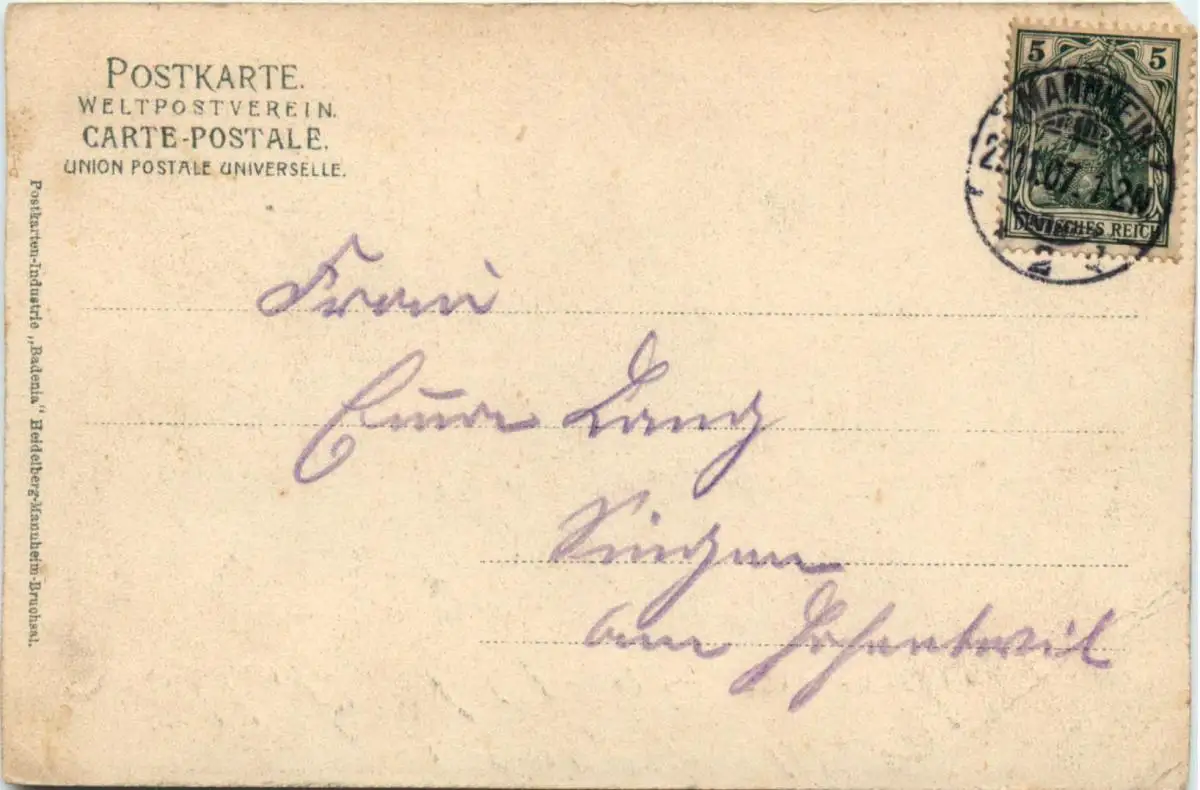 POSTKARTE.
WELTPOSTVEREIN.
CARTE-POSTALE.
UNION POSTALE UNIVERSELLE.
5 5
MANNHEIM
11.07 1-2N
DEUTSCHES REICH
2
Frau
Lang
Singen
am Hohentwiel
Postkarten-Industrie „Badenia“ Heidelberg-Mannheim-Bruchsal.